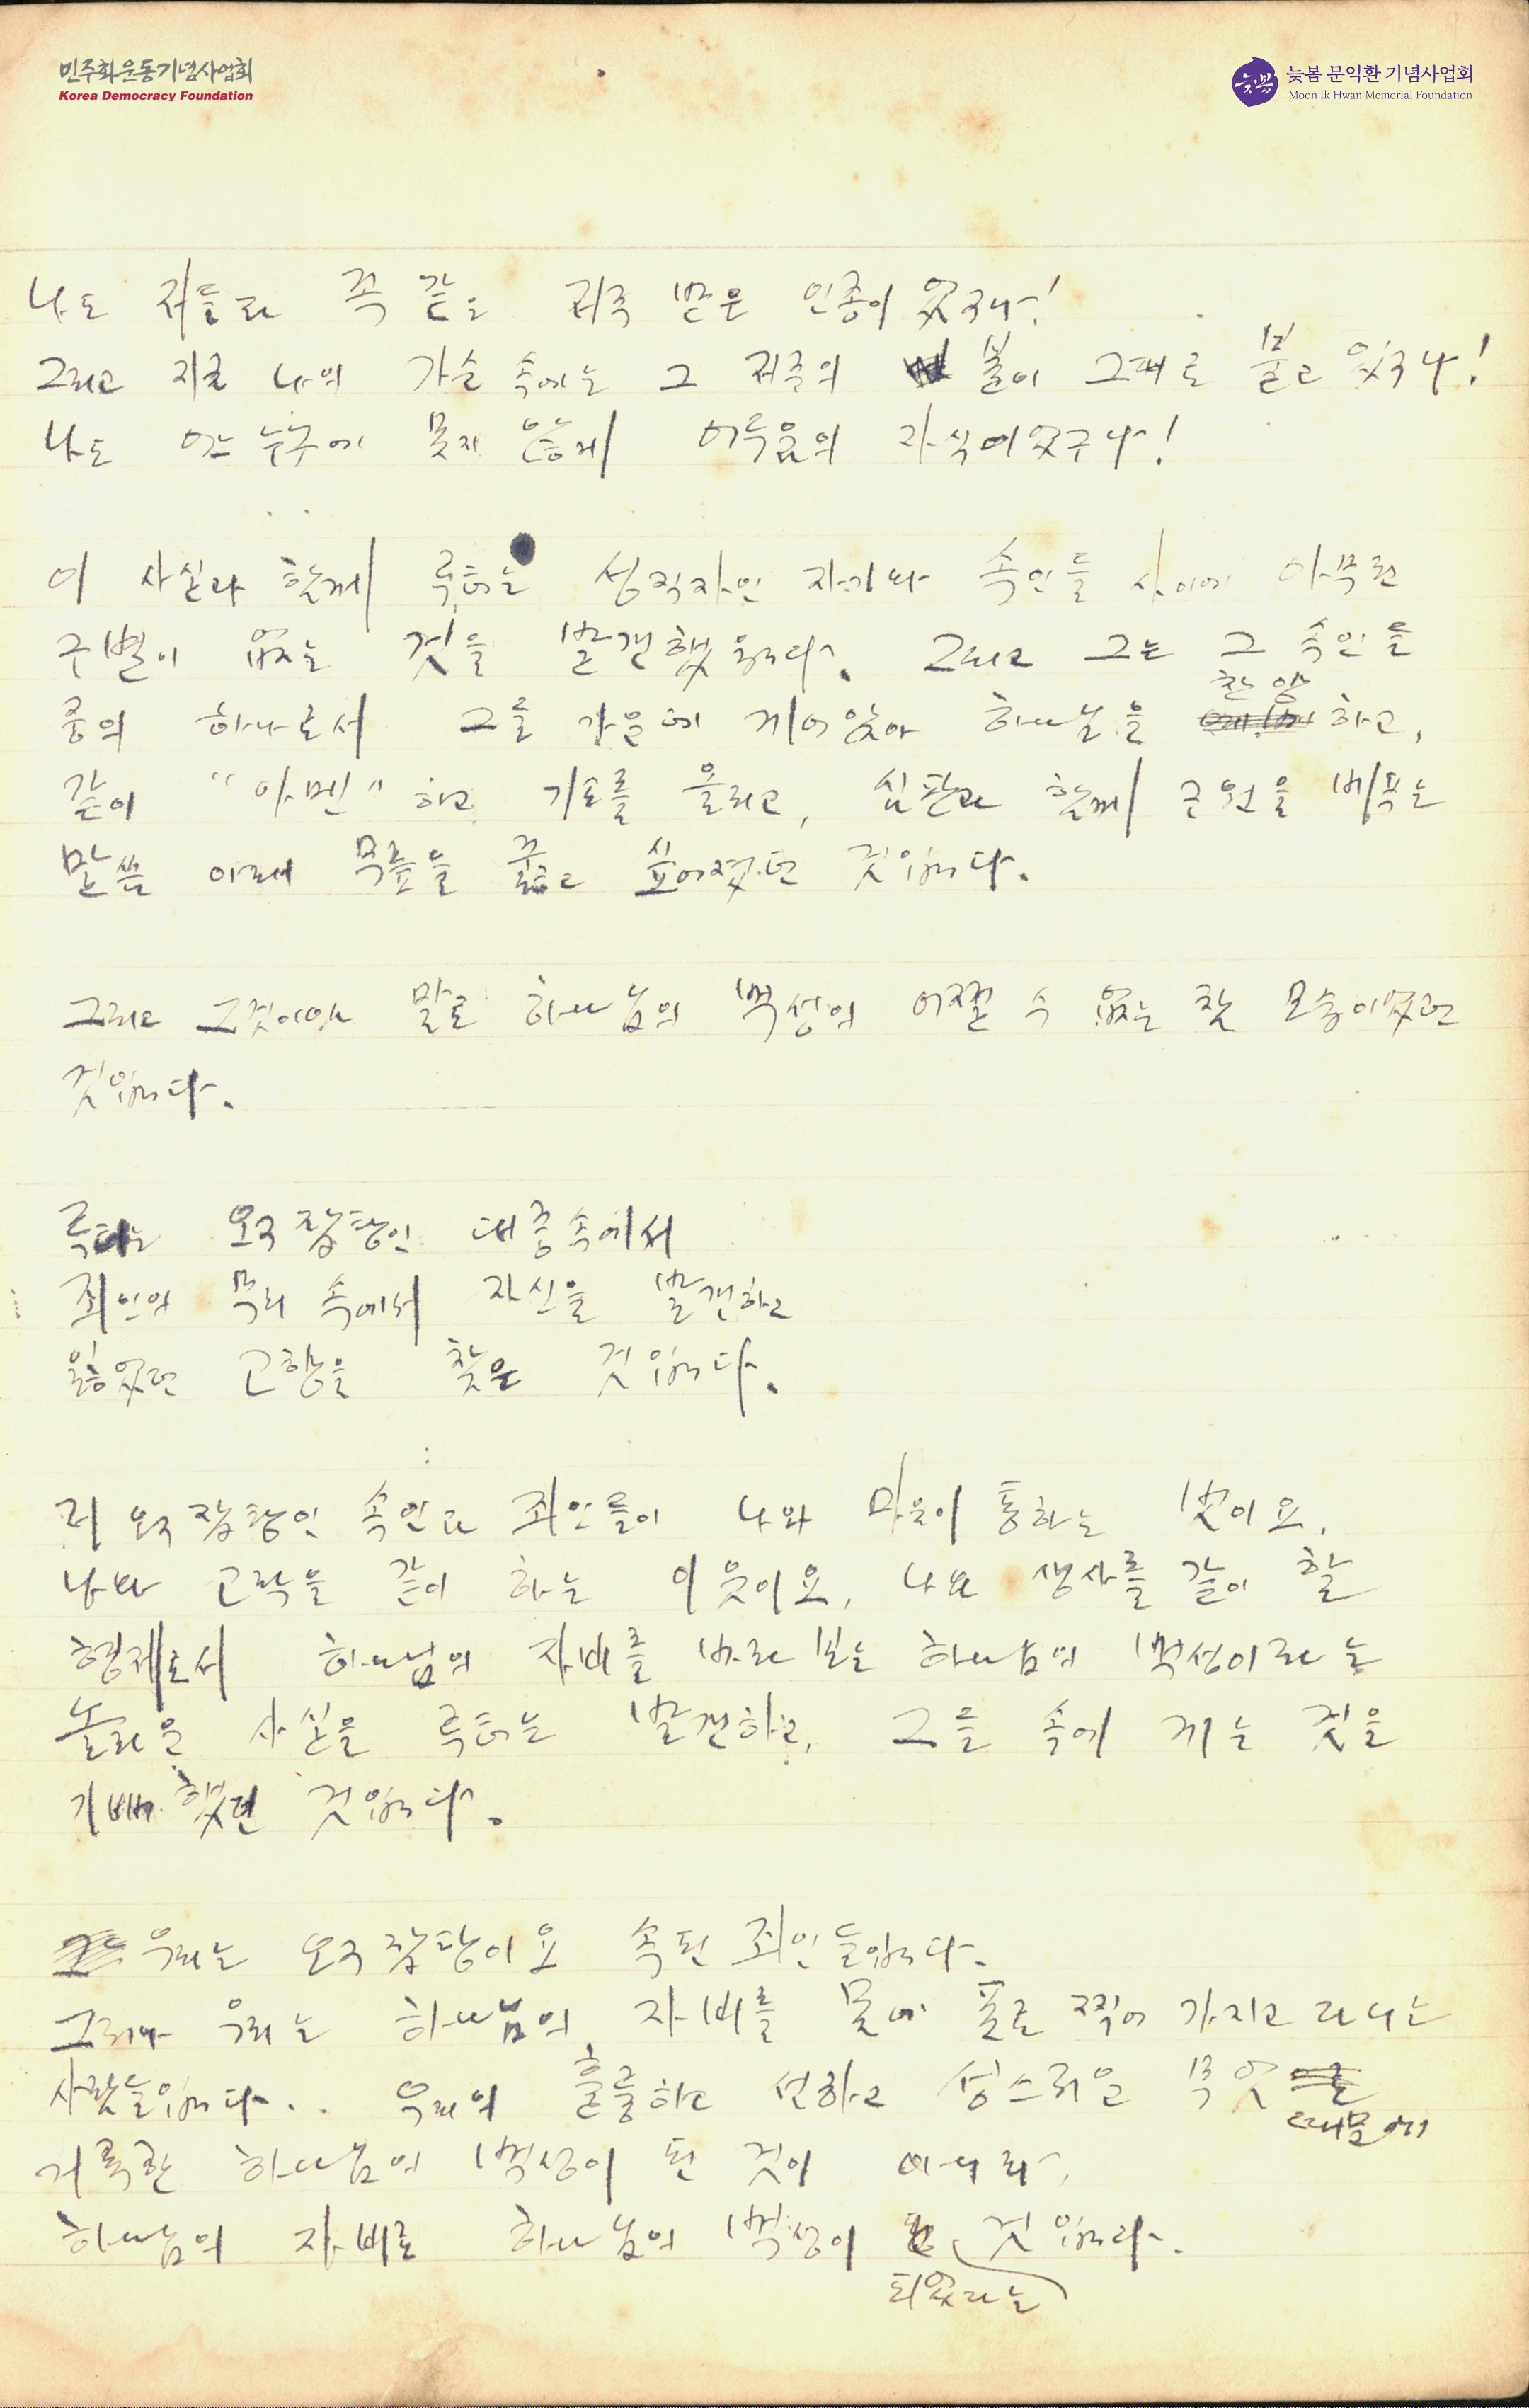 민주화운동기념사업회
Korea Democracy Foundation
늦봄 문익환 기념사업회
Moon Ik Hwan Memorial Foundation
나도 저들과 꼭 같은 저주 받은 인종이었구나!
그리고 지금 나의 가슴 속에는 그 저주의 불이 그대로 붙고 있구나!
나도 어느 누구에 못지 않게 어두움의 자식이었구나!
이 사실과 함께 루터는 성직자인 자기와 속인들 사이에 아무런
구별이 없는 것을 발견했읍니다. 그리고 그는 그 속인들
중의 하나로서 그들 가운데 끼어 앉아 하나님을 찬양하고,
같이 "아멘" 하고 기도를 올리고, 심판과 함께 구원을 베푸는
말씀 아래 무릎을 꿇고 싶어졌던 것입니다.
그리고 그것이야 말로 하나님의 백성의 어쩔 수 없는 참 모습이었던
것입니다.
루터는 오구잡탕인 대중속에서
죄인의 무리 속에서 자신을 발견하고
잃었던 고향을 찾은 것입니다.
저 오구잡탕인 속인과 죄인들이 나와 마음이 통하는 벗이요,
나와 고락을 같이 하는 이웃이요, 나와 생사를 같이 할
형제로서 하나님의 자비를 바라보는 하나님의 백성이라는
놀라운 사실을 루터는 발견하고, 그들 속에 끼는 것을
기뻐했던 것입니다.
우리는 오구잡탕이요 속된 죄인들입니다.
그러나 우리는 하나님의 자비를 몸에 풀로 찍어 가지고 다니는
사람들입니다. 우리의 훌륭하고 선하고 성스러운 무엇
때문에
거룩한 하나님의 백성이 된 것이 아니라,
하나님의 자비로 하나님의 백성이 것입니다.
되었다는